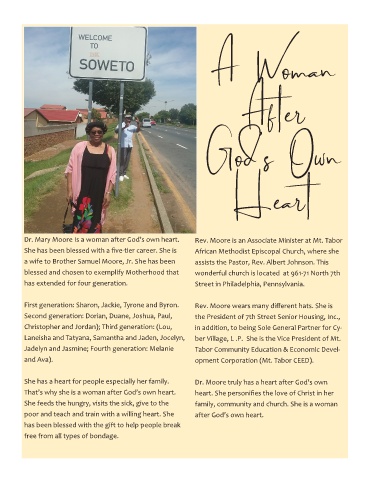 WELCOME
TO
SOWETO
A Woman
After
God's Own
Heart
Dr. Mary Moore is a woman after God's own heart.
She has been blessed with a five-tier career. She is
a wife to Brother Samuel Moore, Jr. She has been
blessed and chosen to exemplify Motherhood that
has extended for four generation.
First generation: Sharon, Jackie, Tyrone and Byron.
Second generation: Dorian, Duane, Joshua, Paul,
Christopher and Jordan); Third generation: (Lou,
Laneisha and Tatyana, Samantha and Jaden, Jocelyn,
Jadelyn and Jasmine; Fourth generation: Melanie
and Ava).
She has a heart for people especially her family.
That's why she is a woman after God's own heart.
She feeds the hungry, visits the sick, give to the
poor and teach and train with a willing heart. She
has been blessed with the gift to help people break
free from all types of bondage.
Rev. Moore is an Associate Minister at Mt. Tabor
African Methodist Episcopal Church, where she
assists the Pastor, Rev. Albert Johnson. This
wonderful church is located at 961-71 North 7th
Street in Philadelphia, Pennsylvania.
Rev. Moore wears many different hats. She is
the President of 7th Street Senior Housing, Inc.,
in addition, to being Sole General Partner for Cy-
ber Village, L .P. She is the Vice President of Mt.
Tabor Community Education & Economic Devel-
opment Corporation (Mt. Tabor CEED).
Dr. Moore truly has a heart after God's own
heart. She personifies the love of Christ in her
family, community and church. She is a woman
after God's own heart.